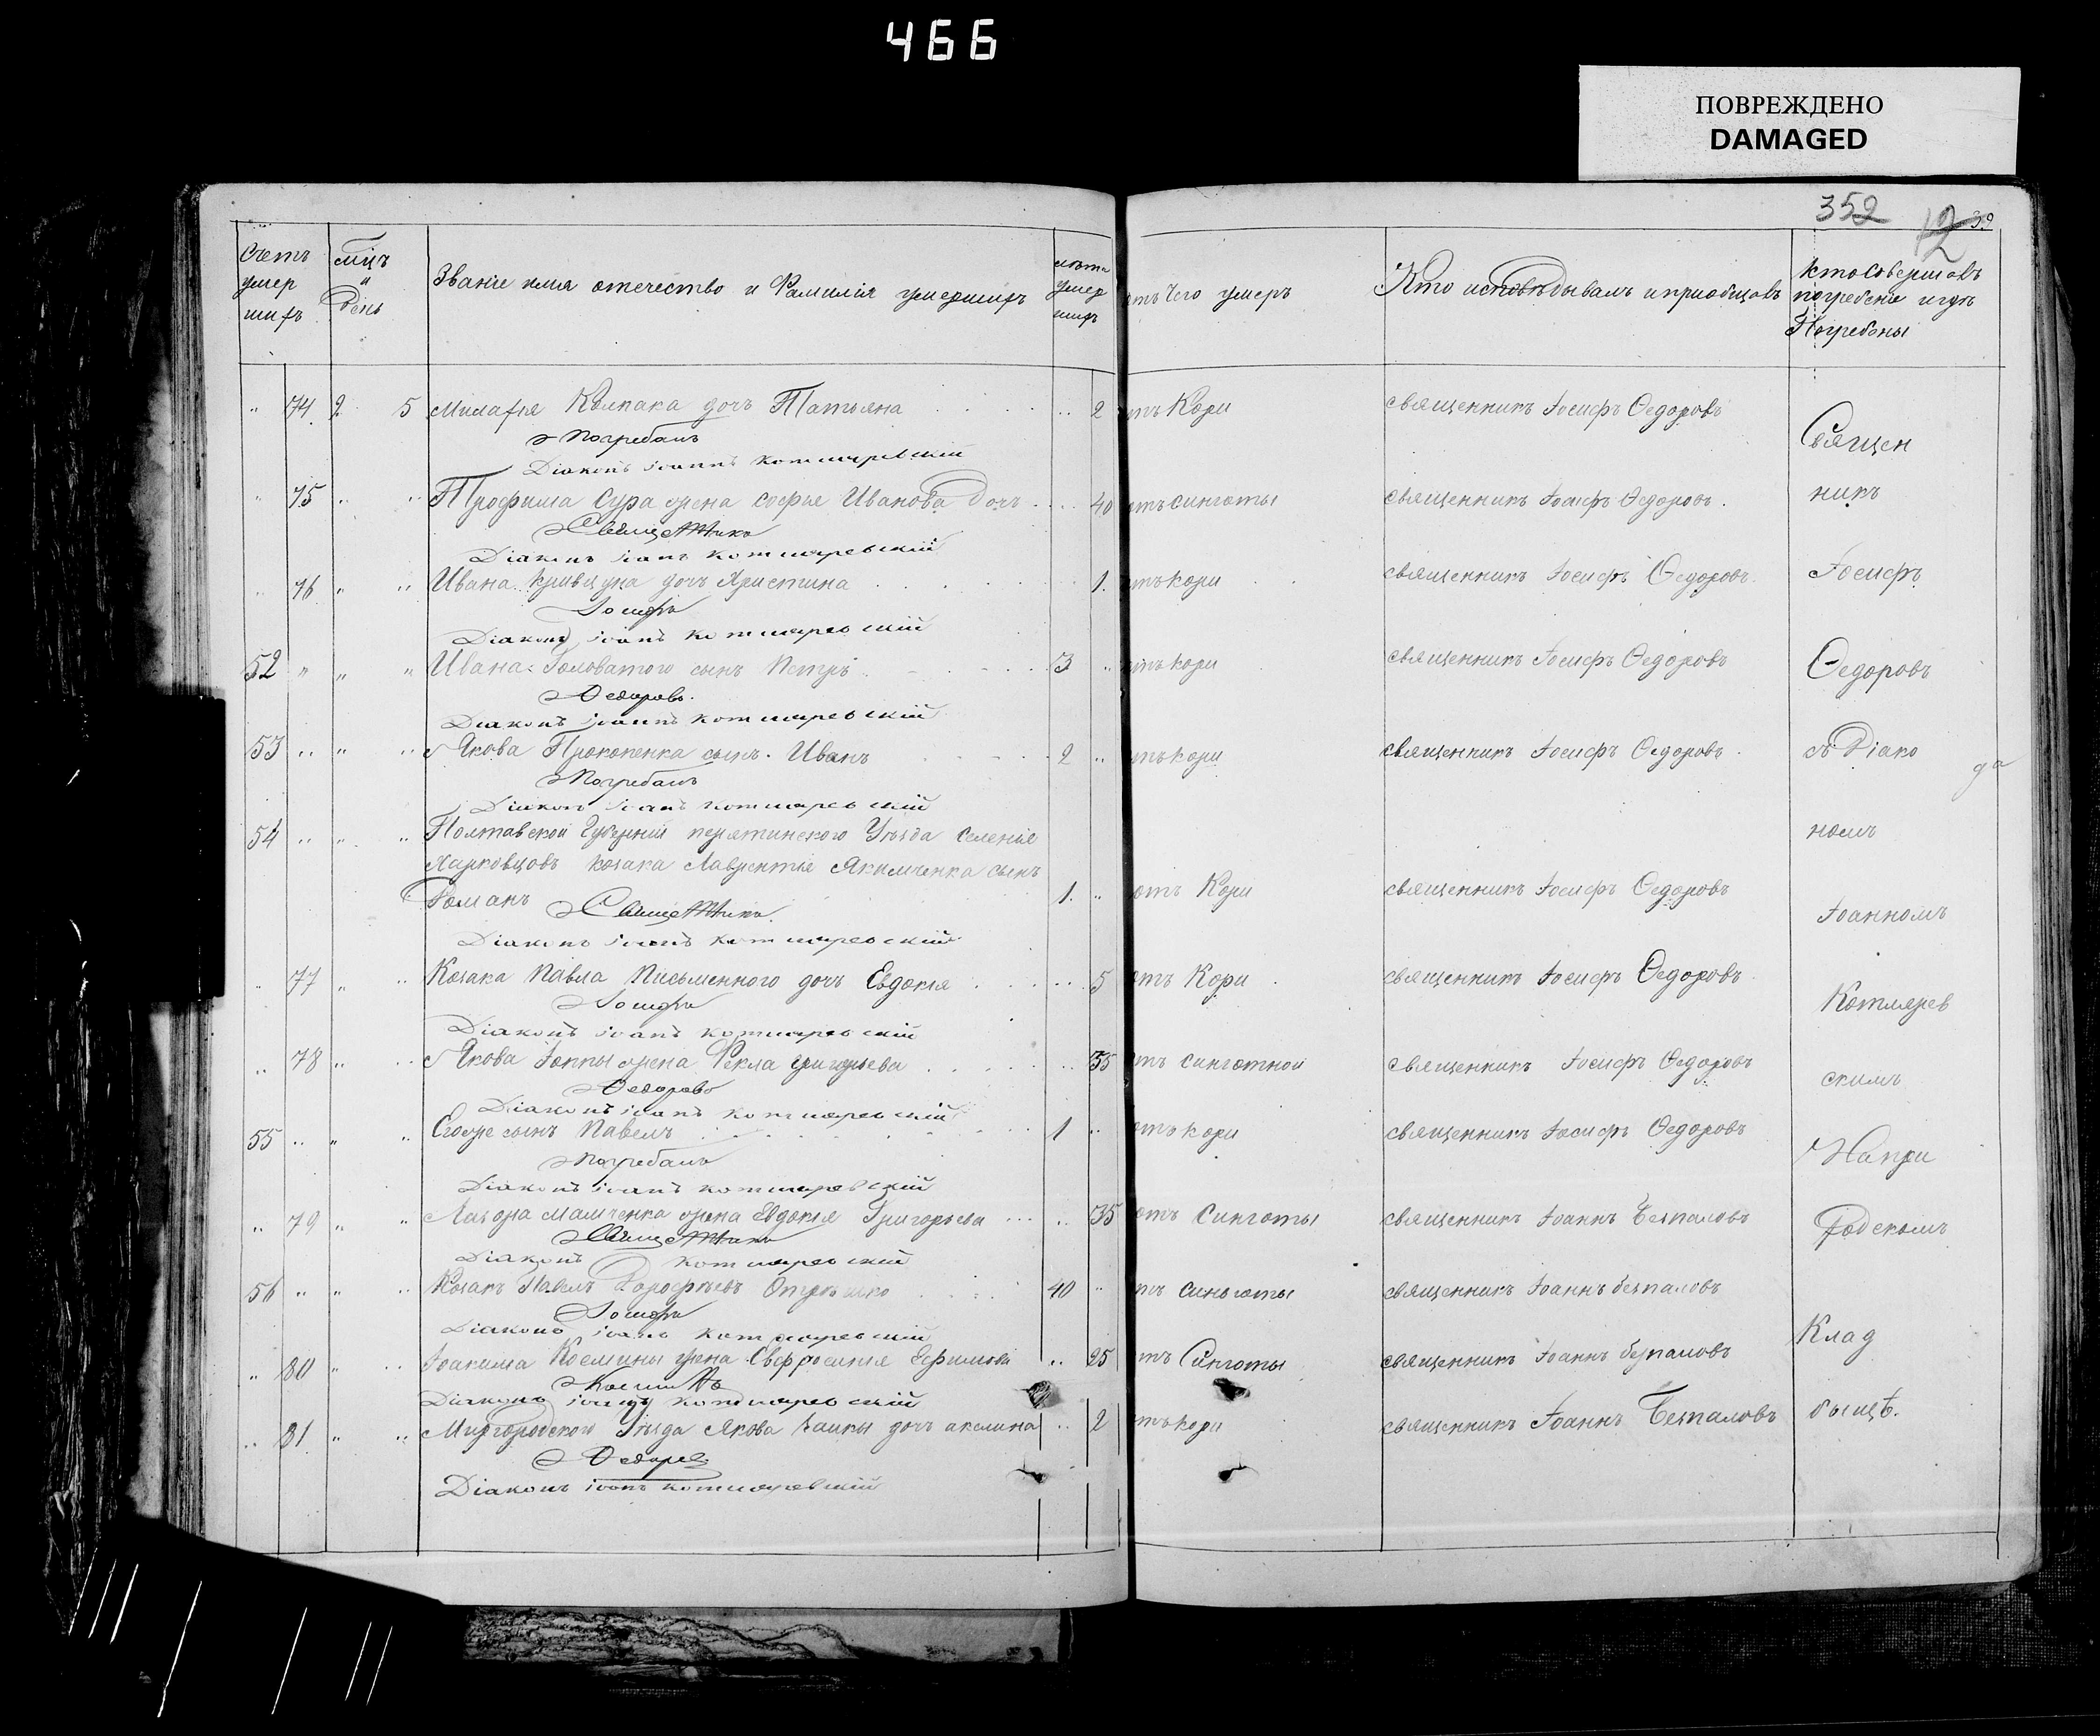 466
ПОВРЕЖДЕНО
DAMAGED
352 12 39
Счетъ умер шихъ
мцъ и День
Званіе имя отечество и Фамилія умершихъ
лѣта умер шихъ
отъ Чего умеръ
Кто исповѣдывалъ и приобщалъ
кто Совершалъ погребеніе и гдѣ Погребены
74 2 5 Колпака дочь Татьяна 2 отъ Кори священникъ Іосифъ Ѳедоровъ
Погребалъ
Діаконъ іоаннъ котляревскій
Священ
75 Трофима Сура жена софья Иванова Дочь 40 отъ синготы священникъ Іосифъ Ѳедоровъ
никъ
Священникъ
Діаконъ іоанъ котляревскій
76 Ивана Кривцуна дочь Христина 1 отъ кори священникъ Іосифъ Ѳедоровъ
Іосифъ
Іосифъ
Діаконъ іоанъ котляревскій
52 Ивана Головатого сынъ Петръ 3 отъ кори священникъ Іосифъ Ѳедоровъ
Ѳедоровъ
Ѳедоровъ
Діаконъ іоаннъ котляревскій
53 Якова Прокопенка сынъ Иванъ 2 отъ кори священникъ Іосифъ Ѳедоровъ
съ Діако
Погребалъ
Діаконъ іоанъ котляревскій
54 Полтавской Губерніи пирятинского Уѣзда селенія
номъ
Харковцовъ козака Лаврентія Якимченка сынъ
Романъ 1 отъ Кори священникъ Іосифъ Ѳедоровъ
Священникъ
Іоанномъ
Діаконъ іоанъ котляревскій
77 Козака Павла Письменного дочь Евдокія 5 отъ Кори священникъ Іосифъ Ѳедоровъ
Іосифъ
Котлярев
Діаконъ іоанъ котляревскій
78 Якова жена Фекла григорьева 35 отъ синготной священникъ Іосифъ Ѳедоровъ
Ѳедоровъ
скимъ
Діаконъ іоанъ котляревскій
55 сынъ Павелъ 1 отъ кори священникъ Іосифъ Ѳедоровъ
Погребалъ
На при
Діаконъ іоанъ котляревскій
79 Лазора мамченка жена Евдокія Григорьева 35 отъ Синготы священникъ Іоаннъ Безпаловъ
ходскомъ
Священникъ
Діаконъ котляревскій
56 Козакъ Павелъ 40 отъ синьготы священникъ Іоаннъ безпаловъ
Іосифъ
Діаконъ іоанъ котляревскій
Клад
80 Іоакима Космины жена Евфросинія Ефимова 25 отъ Синготы священникъ Іоаннъ безпаловъ
Діаконъ іоанъ котляревскій
81 Миргородского Уѣзда Якова дочь акелина 2 отъ кори священникъ Іоаннъ Безпаловъ
бищѣ.
Ѳедоровъ
Діаконъ іоанъ котляревскій